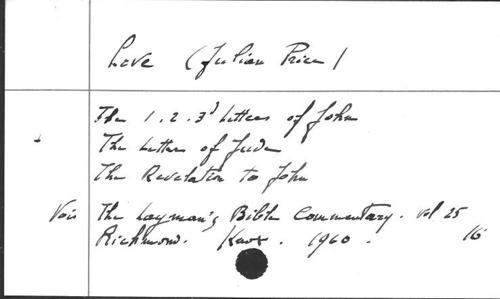 Love (Julian Price)
The 1. 2. 3d Letters of John
The Letter of Jude
The Revelation to John
Voir The Layman's Bible Commentary. vol 25
Richmond. Knox. 1960. 16